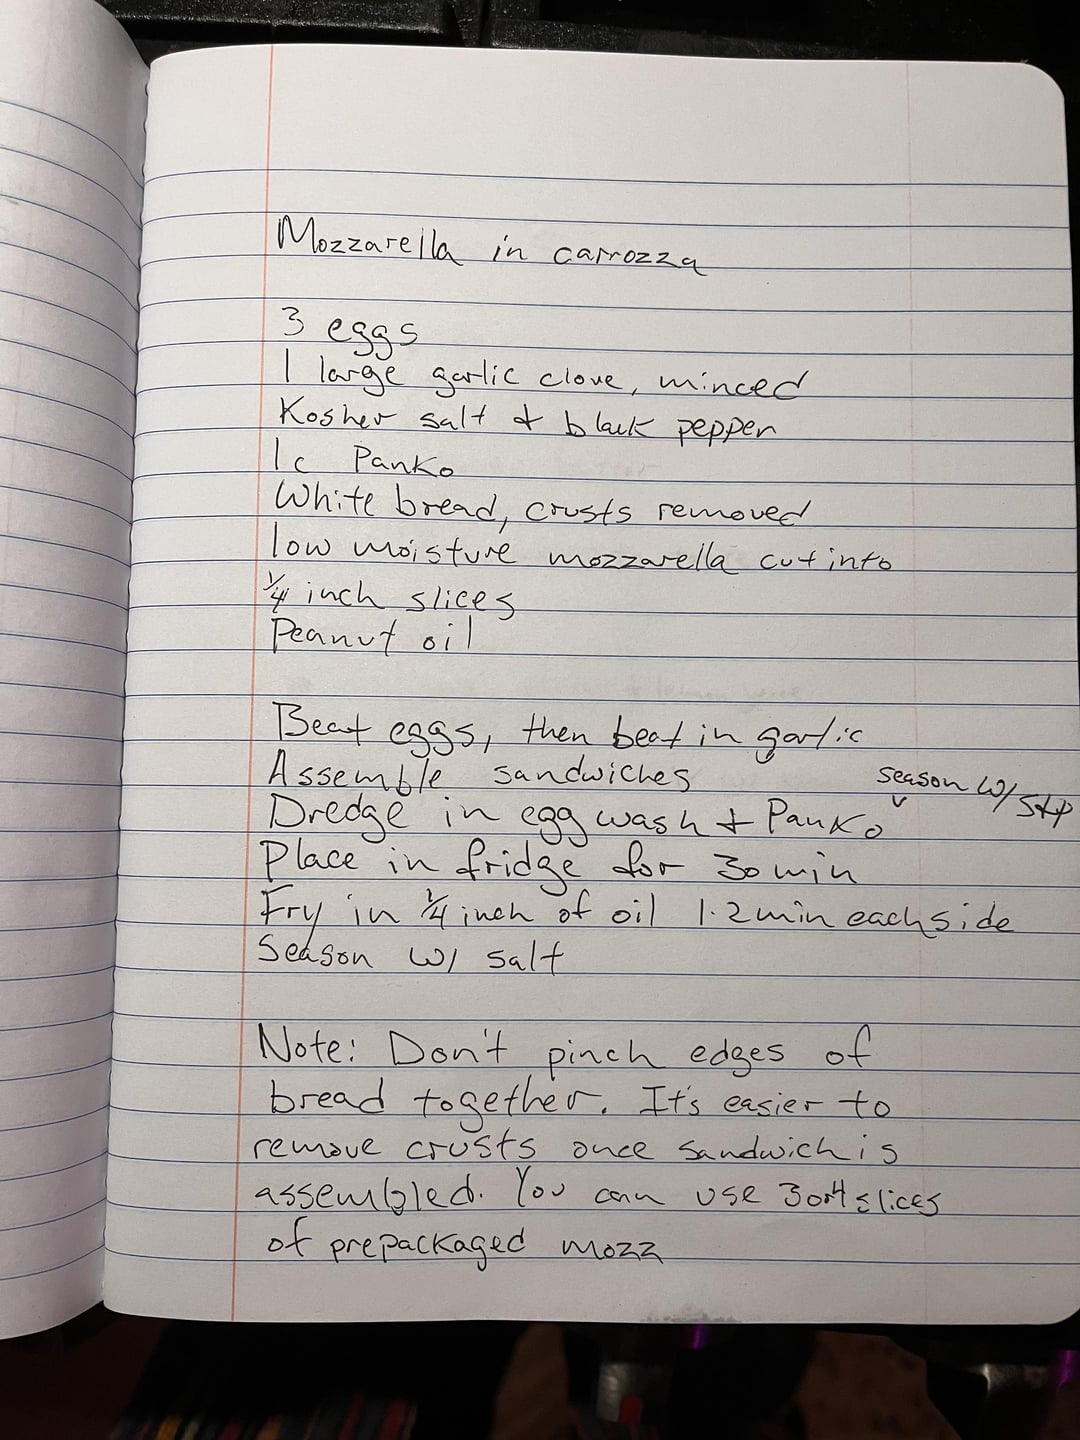 Mozzarella in carrozza
3 eggs
1 large garlic clove, minced
Kosher salt & black pepper
1c Panko
White bread, crusts removed
low moisture mozzarella cut into
1/4 inch slices
Peanut oil
Beat eggs, then beat in garlic
Assemble sandwiches
season w/ S+P
Dredge in egg wash + Panko
Place in fridge for 30 min
Fry in 1/4 inch of oil 1-2 min each side
Season w/ salt
Note: Don't pinch edges of
bread together. It's easier to
remove crusts once sandwich is
assembled. You can use 3 or 4 slices
of prepackaged mozz